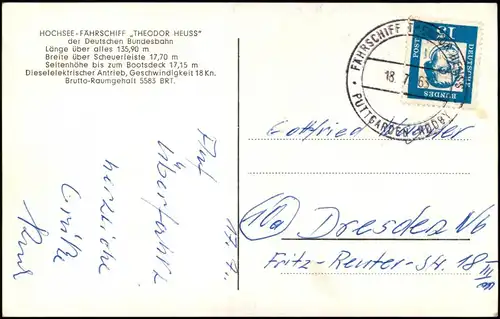 HOCHSEE-FÄHRSCHIFF „THEODOR HEUSS"
der Deutschen Bundesbahn
Länge über alles 135,90 m
Breite über Scheuerleiste 17,70 m
Seitenhöhe bis zum Bootsdeck 17,15 m
Dieselelektrischer Antrieb, Geschwindigkeit 18 Kn.
Brutto-Raumgehalt 5583 BRT.
17.7.
Auf
Überfahrt
herzliche
Grüße
FÄHRSCHIFF
18.7.
PUTTGARDEN-RØDBY
15
DEUTSCHE
BUNDES
POST
Gottfried
10a Dresden N6
Fritz-Reuter-Str. 18 III